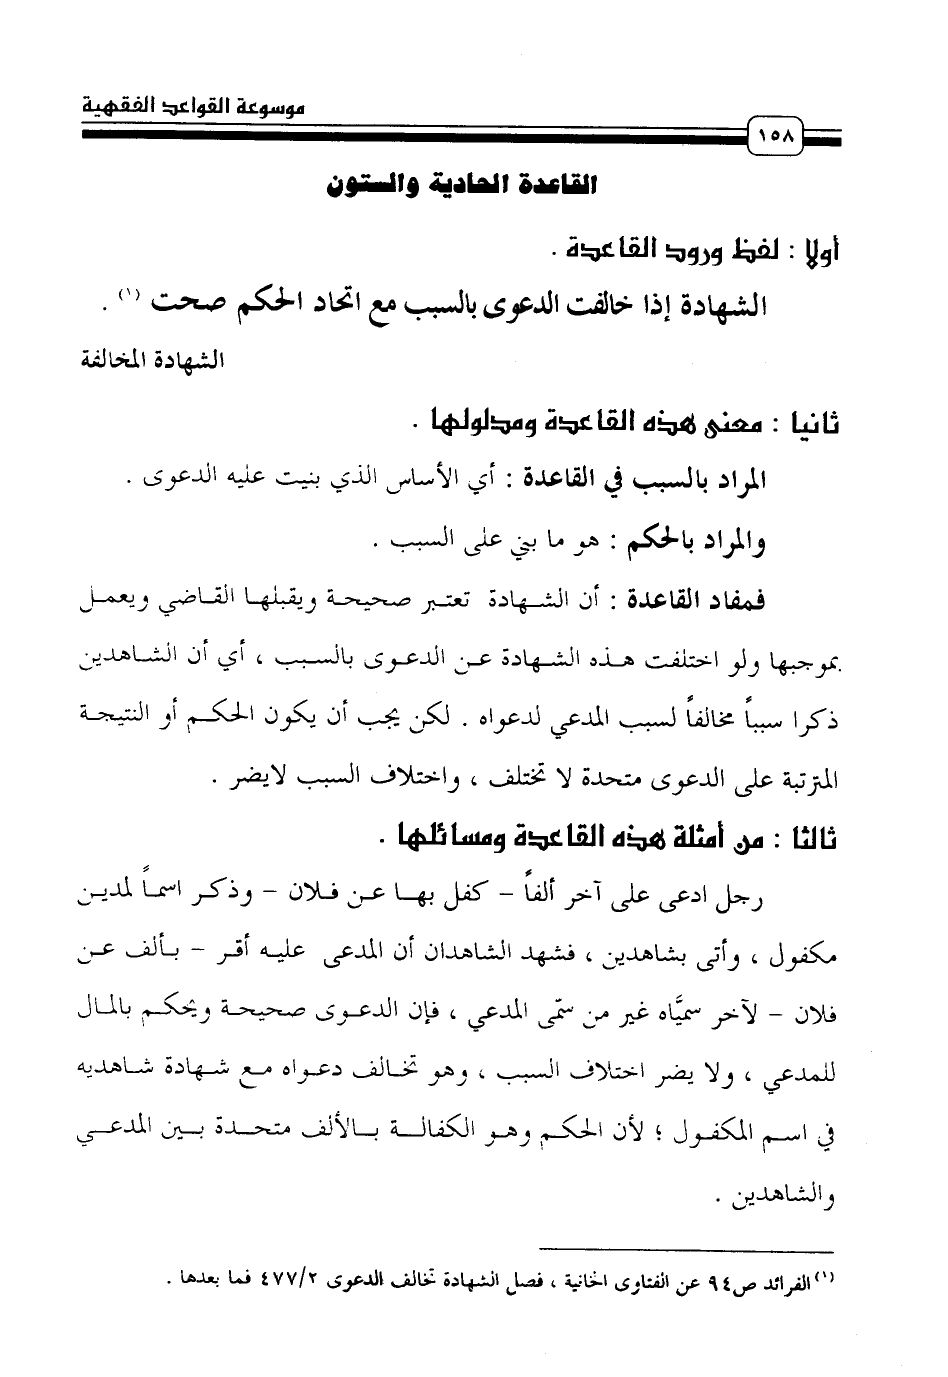 موسوعة القواعد الفقهية
١٥٨
القاعدة الحادية والستون
أولا : لفظ ورود القاعدة .
الشهادة إذا خالفت الدعوى بالسبب مع اتحاد الحكم صحت (١) .
الشهادة المخالفة
ثانيا : معنى هذه القاعدة ومدلولها .
المراد بالسبب في القاعدة : أي الأساس الذي بنيت عليه الدعوى .
والمراد بالحكم : هو ما بني على السبب .
فمفاد القاعدة : أن الشهادة تعتبر صحيحة ويقبلها القاضي ويعمل
بموجبها ولو اختلفت هذه الشهادة عن الدعوى بالسبب ، أي أن الشاهدين
ذكرا سبباً مخالفاً لسبب المدعي لدعواه . لكن يجب أن يكون الحكم أو النتيجة
المترتبة على الدعوى متحدة لا تختلف ، واختلاف السبب لايضر .
ثالثا : من أمثلة هذه القاعدة ومسائلها .
رجل ادعى على آخر ألفاً – كفل بها عن فلان – وذكر اسماً لمدين
مكفول ، وأتى بشاهدين ، فشهد الشاهدان أن المدعى عليه أقر – بألف عن
فلان – لآخر سمَّياه غير من سمّى المدعي ، فإن الدعوى صحيحة ويحكم بالمال
للمدعي ، ولا يضر اختلاف السبب ، وهو تخالف دعواه مع شهادة شاهديه
في اسم المكفول ؛ لأن الحكم وهو الكفالة بالألف متحدة بين المدعي
والشاهدين .
(١) الفرائد ص٩٤ عن الفتاوى الخانية ، فصل الشهادة تخالف الدعوى ٤٧٧/٢ فما بعدها .